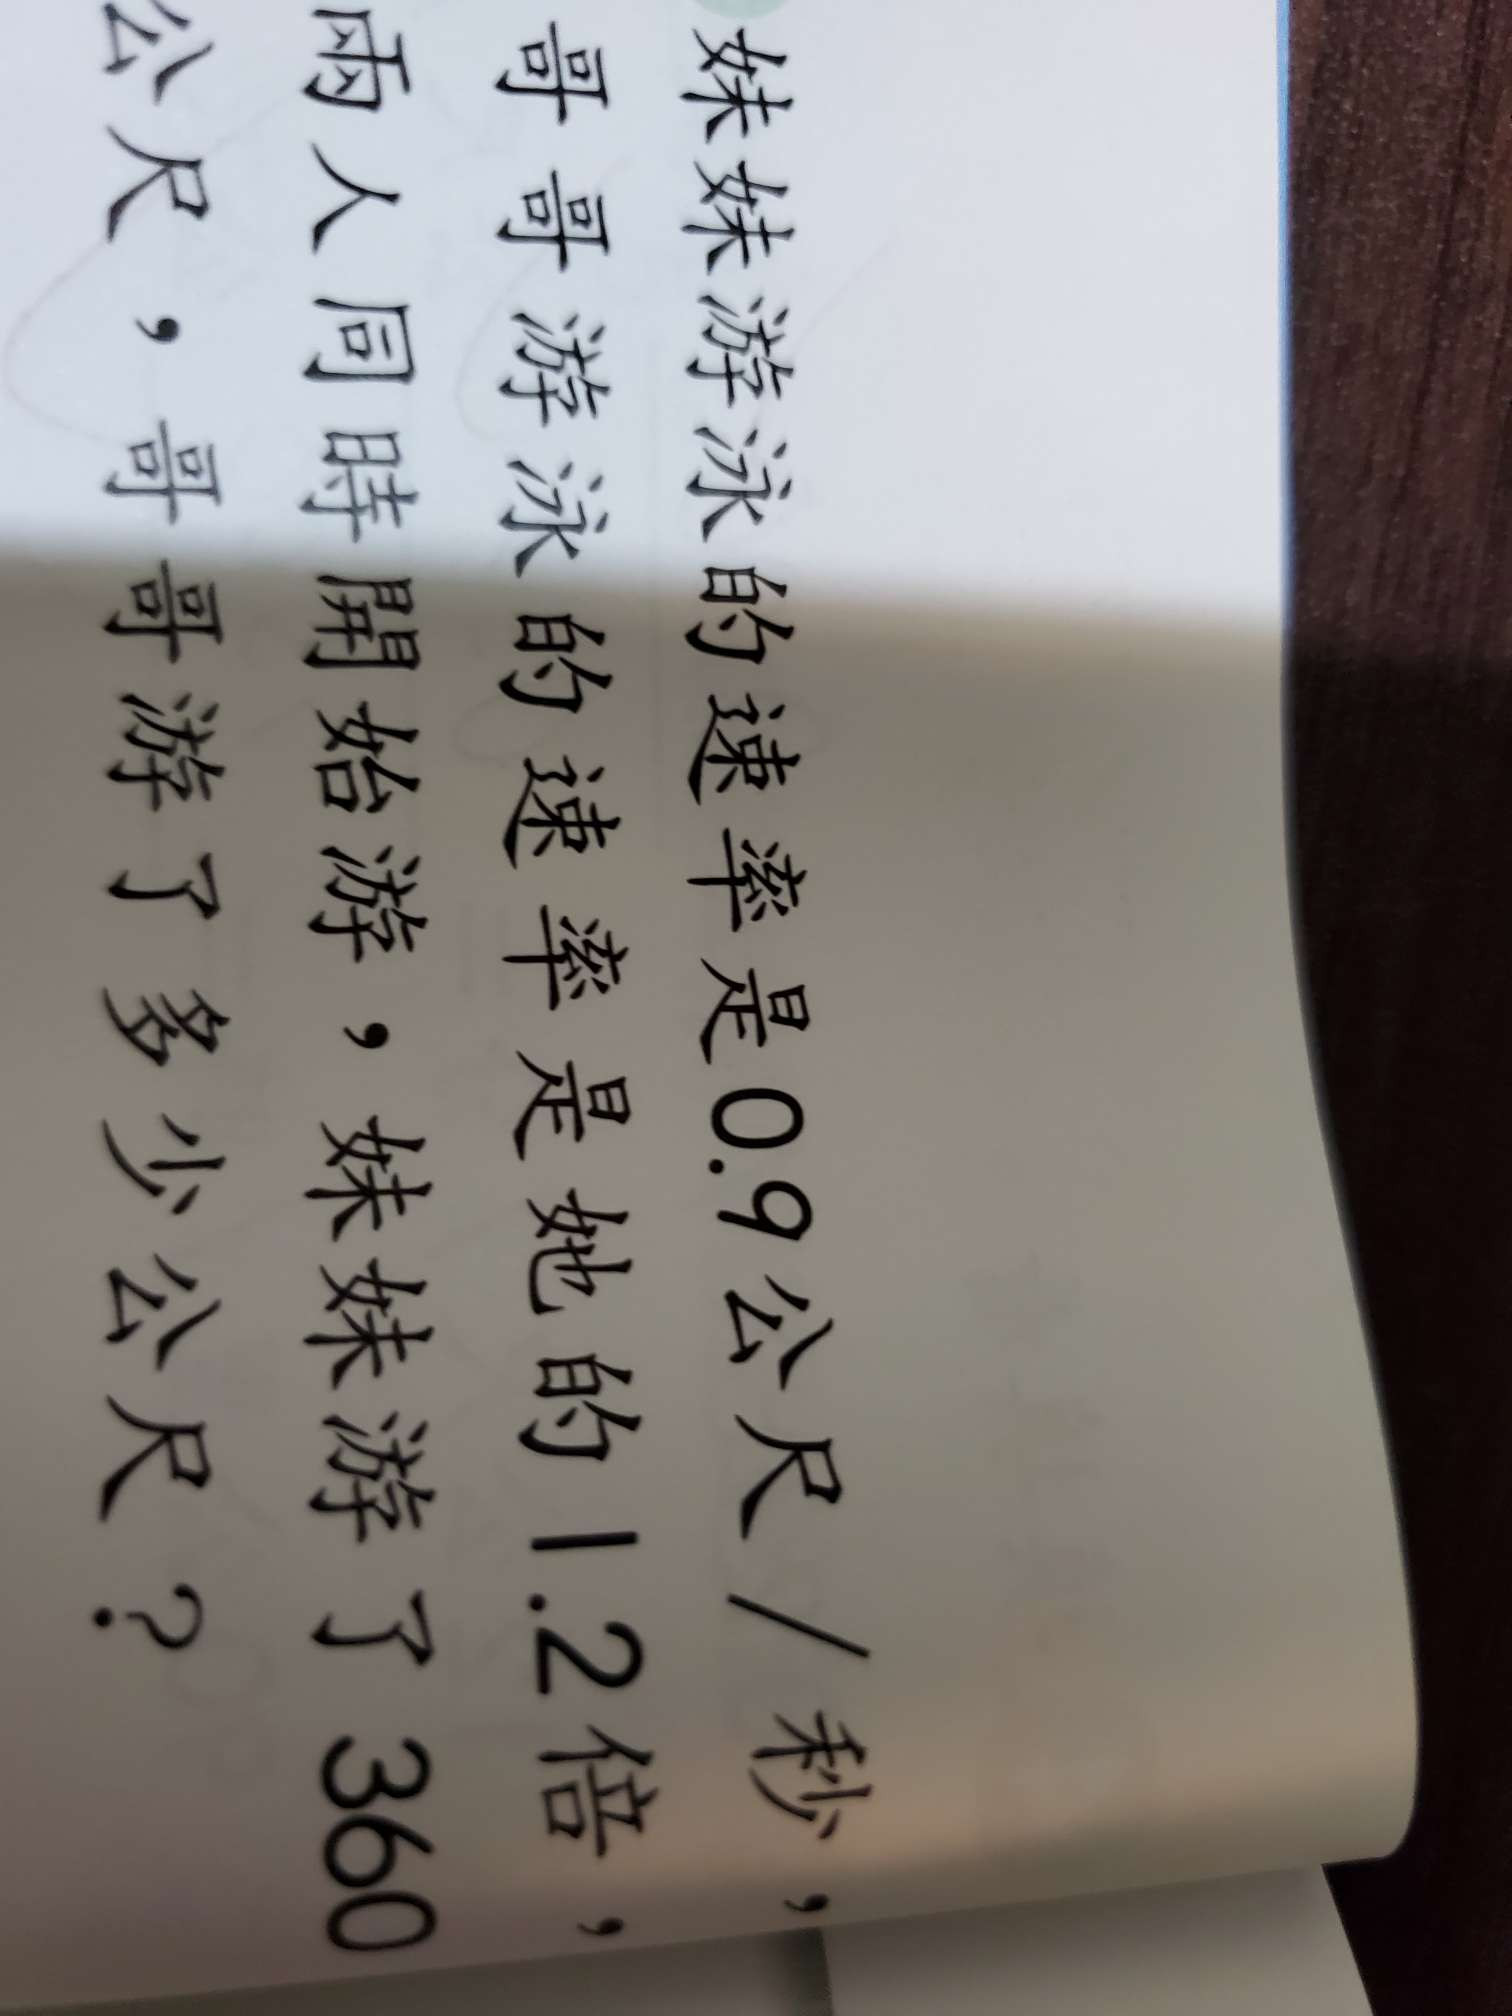 妹妹游泳的速率是0.9公尺/秒，
哥哥游泳的速率是她的1.2倍，
兩人同時開始游，妹妹游了360
公尺，哥哥游了多少公尺？